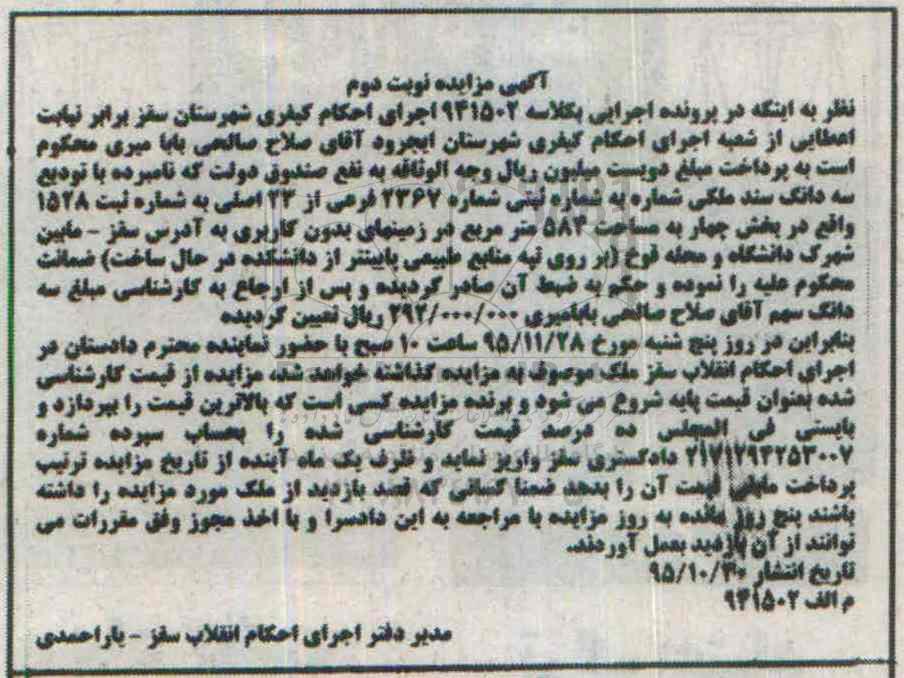 آگهی مزایده نوبت دوم
نظر به اینکه در پرونده اجرایی بکلاسه ۹۴۱۵۰۲ اجرای احکام کیفری شهرستان سقز برابر نیابت
اعطایی از شعبه اجرای احکام کیفری شهرستان ایجرود آقای صلاح صالحی بابا میری محکوم
است به پرداخت مبلغ دویست میلیون ریال وجه الوثاقه به نفع صندوق دولت که نامبرده با تودیع
سه دانگ سند ملکی شماره به شماره ثبتی شماره ۲۳۶۷ فرعی از ۲۳ اصلی به شماره ثبت ۱۵۲۸
واقع در بخش چهار به مساحت ۵۸۴ متر مربع در زمینهای بدون کاربری به آدرس سقز - مابین
شهرک دانشگاه و محله قوخ (بر روی تپه منابع طبیعی پایینتر از دانشکده در حال ساخت) ضمانت
محکوم علیه را نموده و حکم به ضبط آن صادر گردیده و پس از ارجاع به کارشناسی مبلغ سه
دانگ سهم آقای صلاح صالحی بابامیری ۲۹۲/۰۰۰/۰۰۰ ریال تعیین گردیده
بنابراین در روز پنج شنبه مورخ ۹۵/۱۱/۲۸ ساعت ۱۰ صبح با حضور نماینده محترم دادستان در
اجرای احکام انقلاب سقز ملک موصوف به مزایده گذاشته خواهد شد، مزایده از قیمت کارشناسی
شده بعنوان قیمت پایه شروع می شود و برنده مزایده کسی است که بالاترین قیمت را بپردازد و
بایستی فی المجلس ده درصد قیمت کارشناسی شده را بحساب سپرده شماره
۲۱۷۱۲۹۴۲۵۳۰۰۷ دادگستری سقز واریز نماید و ظرف یک ماه آینده از تاریخ مزایده ترتیب
پرداخت مابقی قیمت آن را بدهد ضمنا کسانی که قصد بازدید از ملک مورد مزایده را داشته
باشند پنج روز مانده به روز مزایده با مراجعه به این دادسرا و با اخذ مجوز وفق مقررات می
توانند از آن بازدید بعمل آوردند.
تاریخ انتشار ۹۵/۱۰/۳۰
م الف ۹۴۱۵۰۲
مدیر دفتر اجرای احکام انقلاب سقز - یاراحمدی